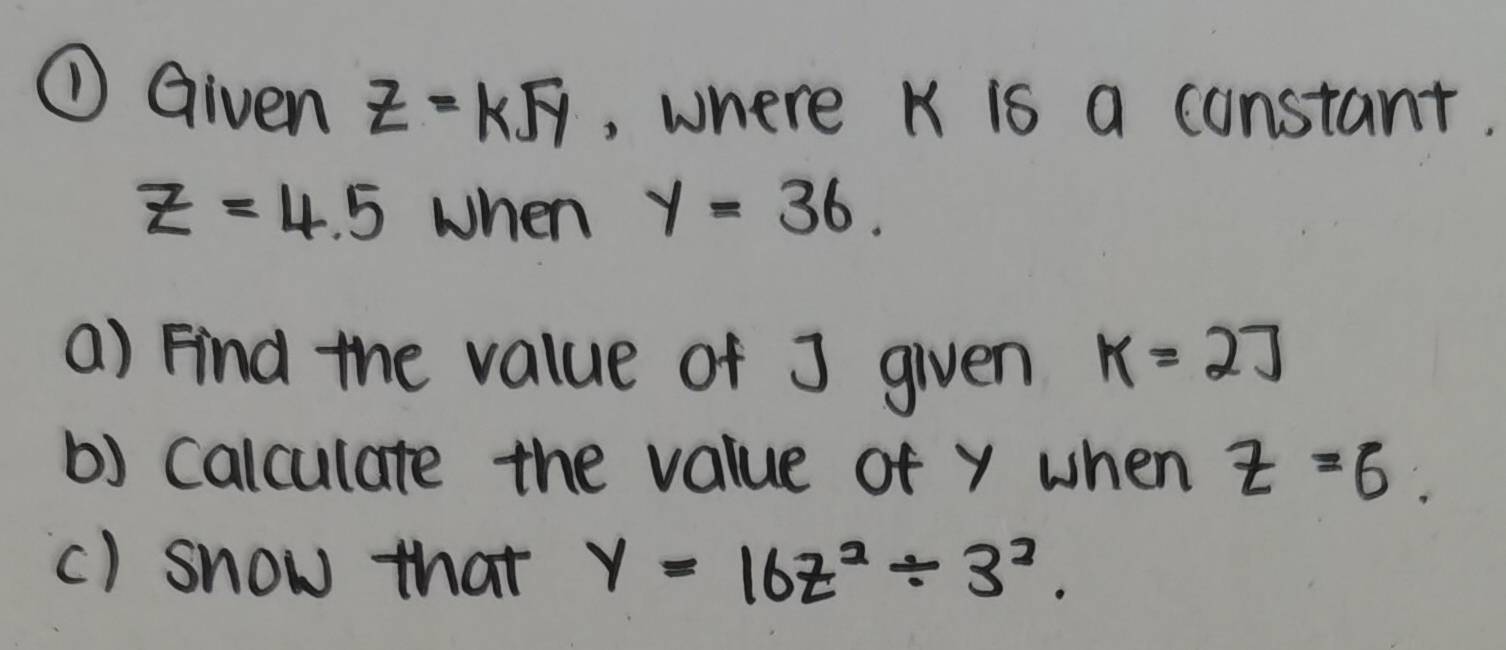 ① Given z = k√y, where K is a constant.
z = 4.5 when Y = 36.
a) Find the value of J given K = 2J
b) Calculate the value of y when z = 6.
c) Show that Y = 16z² ÷ 3².